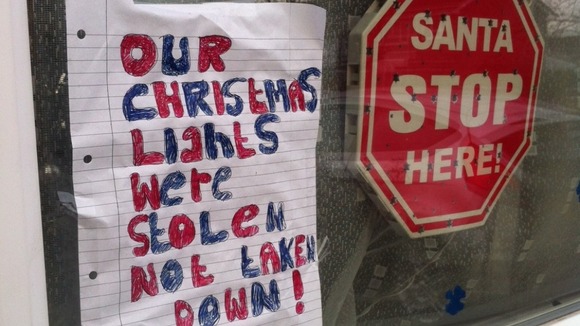 OUR
CHRISTMAS
Lights
Were
StoLeN
Not taKEN
DOWN!
SANTA
STOP
HERE!